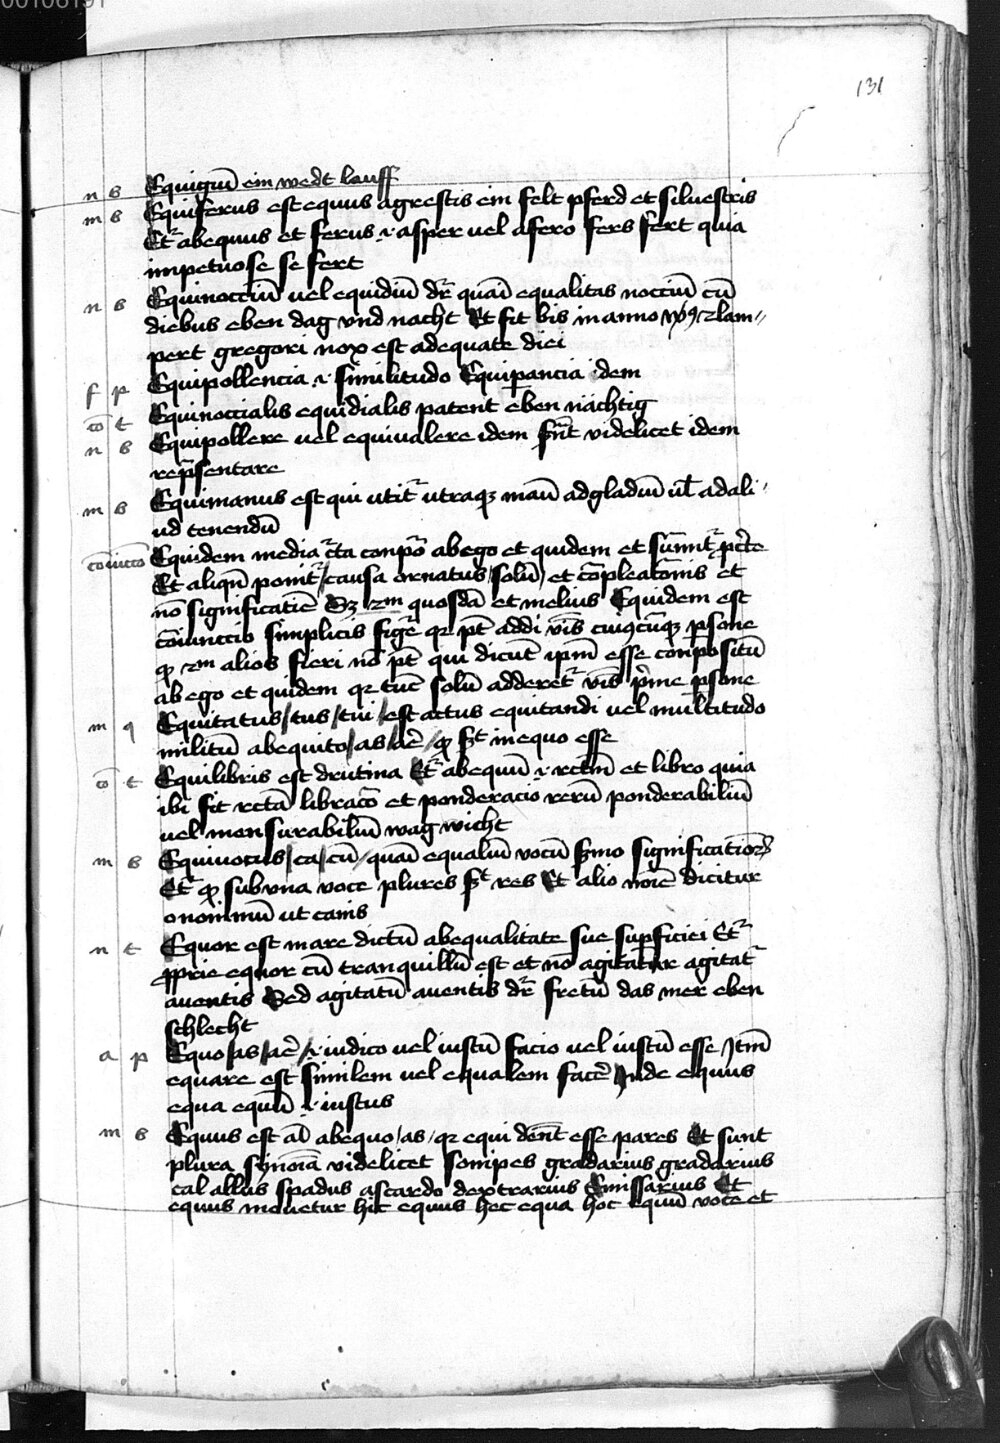 00106191
131
n s Equiqiũ ein wedt lauff
m s Equiferus est equus agrestis ein felt pferd et siluestris
Et᷑ ab equus et ferus .i. asper uel a fero fers fert quia
impetuose se fert
n s Equinocciũ uel equidiũ dr̃ quãi equalitas noctiũ cũ
diebus eben dag vnd nacht Et fit bis in anno lam-
pert gregori nox est adequate diei
f p Equipollencia .i. similitudo Equiꝑancia idem
cõ t Equinoccialis equidialis patent eben nachtig
n s Equipollere uel equiualere idem sñt videlicet idem
rep̃sentare
m s Equimanus est qui utit᷑ utraqꝫ manũ ad gladiũ ul̃ ad ali-
ud tenendũ
cõiũctio Equidem media cõpõ ab ego et quidem et sũmit᷑ pc̃te
Et aliqñ ponit᷑ / causa ornatus / solũ / et cõpleatõnis et
nõ significatiẽ Sꝫ 2m quosdã et melius Equidem est
cõiunctio simplicis figẽ qꝛ pt̃ addi v̾bis cuiꝯcũqꝫ ꝑsone
qđ 2m alios fieri nõ pt̃ qui dicũt ip̃m esse conpositũ
ab ego et quidem qꝛ tũc solũ adderet᷑ v̾bis p̃me ꝑsone
m q Equitatus / tus / tui / est actus equitandi uel multitudo
militũ ab equito / as / aẽ / qđ st̃ in equo esse
cõ t Equilibris est drutina Et᷑ ab equũ .i. rectũ et libro quia
ibi fit recta libracõ et ponderacio rerũ ponderabiliũ
uel mensurabiliũ wag wicht
m s Equiuocus / ca / cũ / quãi equaliũ vocũ significationũ
Et᷑ qđ sub vna voce plures st̃ res Et alio noiẽ dicitur
onoimũ ut canis
n t Equor est mare dictũ ab equalitate sue suꝑficiei Et᷑
ꝓprie equor cũ tranquillũ est et nõ agitatur agitat᷑
a uentis Sed agitatũ a uentis dr̃ fretũ das mer eben
schlecht
a p Equo / as / aẽ / .i. iudico uel iustũ facio uel iustũ esse Jtm̃
equare est similem uel equalem facẽ Jnde equus
equa equũ .i. iustus
m s Equus est aĩl ab equo / as / qꝛ equi dñt esse pares Et sunt
plura sỹnoĩa videlicet sonipes gradarius gradarius
cal allus spadus ascardo dextrarius Emissarius Et
equus mouetur hic equus hec equa hoc equũ voce et